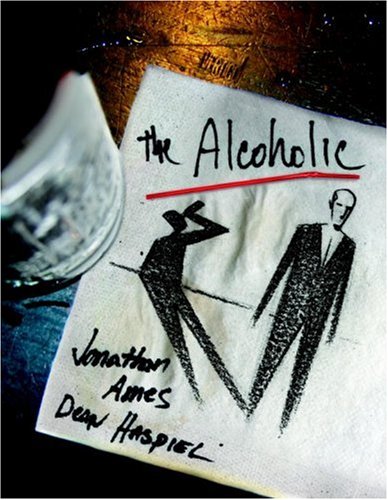 the Alcoholic
Jonathan
Ames
Dean Haspiel